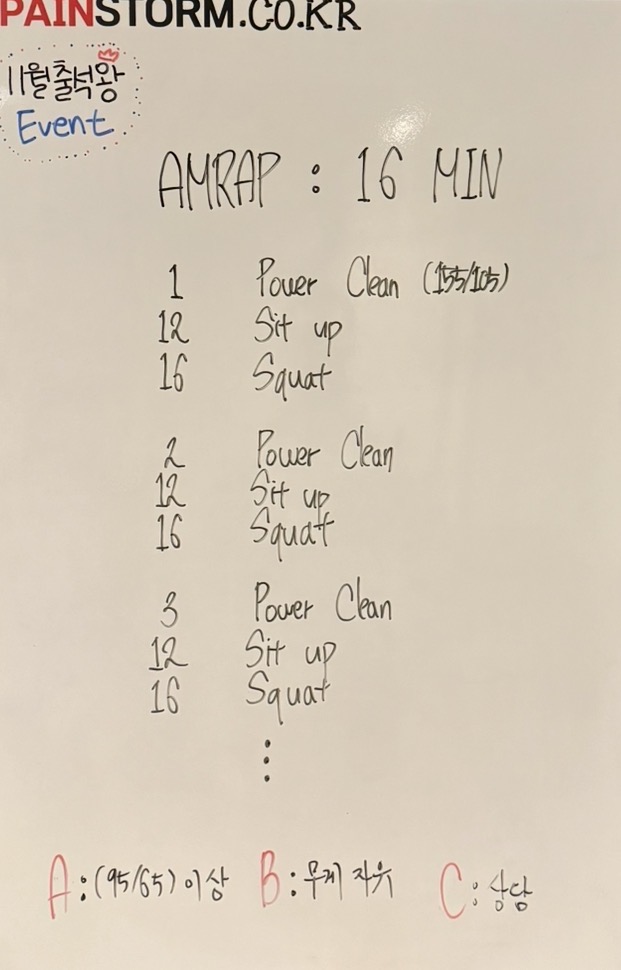 PAINSTORM.CO.KR
11월 출석왕
Event
AMRAP : 16 MIN
1 Power Clean (155/105)
12 Sit up
16 Squat
2 Power Clean
12 Sit up
16 Squat
3 Power Clean
12 Sit up
16 Squat
⋮
A : (95/65) 이상 B : 무게 자유 C : 상담